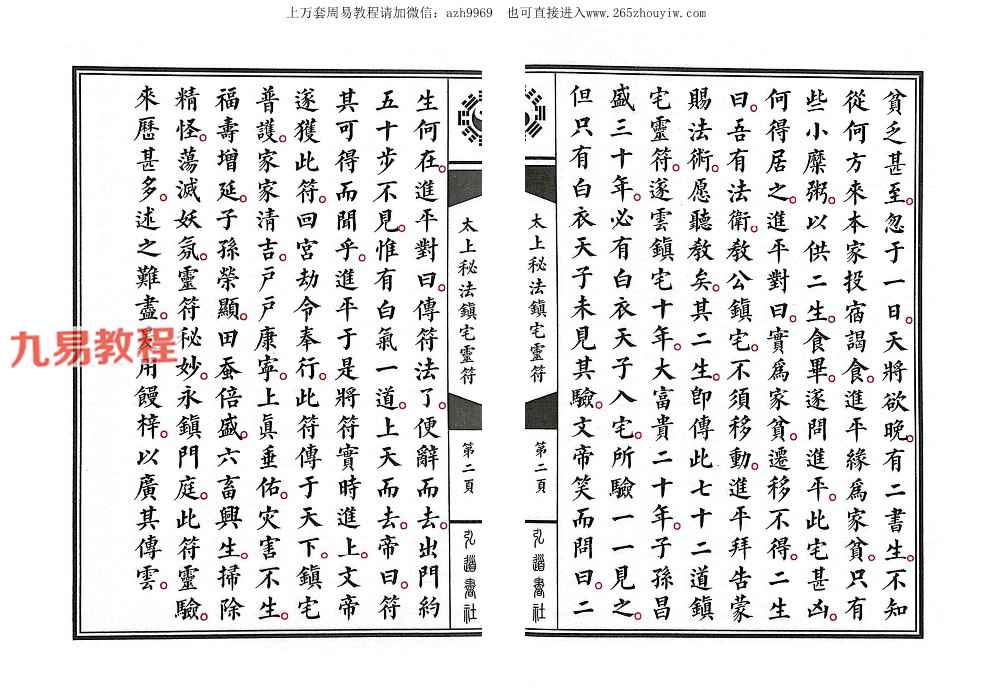 上万套周易教程请加微信：azh9969　也可直接进入www.265zhouyiw.com
貧乏甚至。忽于一日。天將欲晚。有二書生。不知
從何方來本家投宿謁食。進平緣爲家貧。只有
些小糜粥。以供二生。食畢。遂問進平。此宅甚凶。
何得居之。進平對曰。實爲家貧。遷移不得。二生
曰。吾有法衛。教公鎮宅。不須移動。進平拜告蒙
賜法術。愿聽教矣。其二生。卽傳此七十二道鎮
宅靈符。遂雲鎮宅十年。大富貴二十年。子孫昌
盛三十年。必有白衣天子入宅。所驗一一見之。
但只有白衣天子未見其驗。文帝笑而問曰。二
太上秘法鎮宅靈符
第二頁
弘道書社
太上秘法鎮宅靈符
第二頁
弘道書社
生何在。進平對曰。傳符法了。便辭而去。出門約
五十步不見。惟有白氣一道。上天而去。帝曰。符
其可得而聞乎。進平于是將符實時進上。文帝
遂獲此符。回宮劫令奉行。此符傳于天下。鎮宅
普護。家家清吉。戶戶康寧。上眞垂佑。灾害不生。
福壽增延。子孫榮顯。田蚕倍盛。六畜興生。掃除
精怪。蕩滅妖氛。靈符秘妙。永鎮門庭。此符靈驗。
來歷甚多。述之難盡。用饅梓。以廣其傳雲。
九易教程